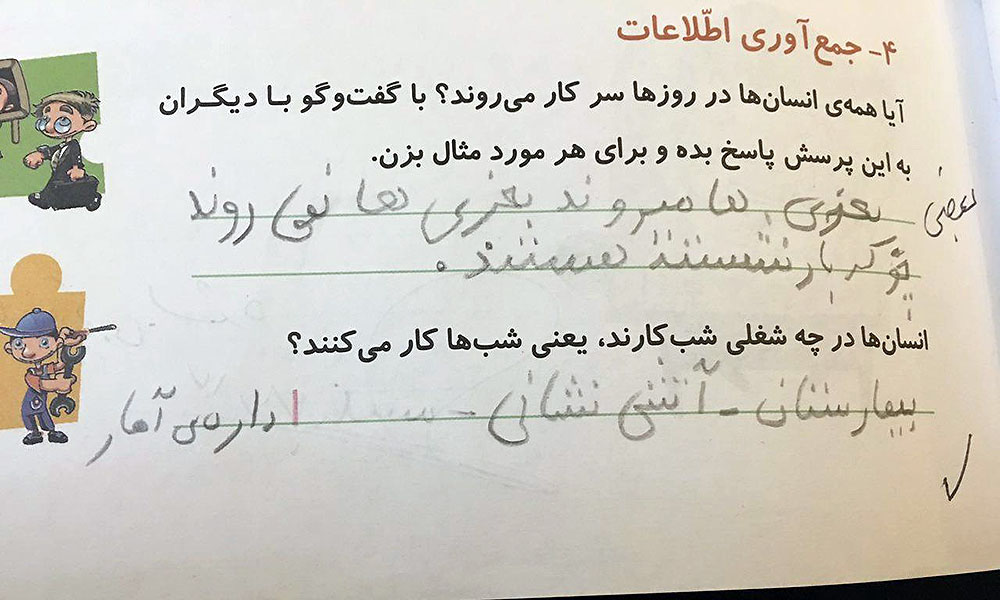 ۴- جمع‌آوری اطّلاعات
آیا همه‌ی انسان‌ها در روزها سر کار می‌روند؟ با گفت‌وگو با دیگران
به این پرسش پاسخ بده و برای هر مورد مثال بزن.
بعزی ها میروند بعزی ها نمی روند
بعضی
هستند.
انسان‌ها در چه شغلی شب‌کارند، یعنی شب‌ها کار می‌کنند؟
بیمارستان - آتش نشانی - اداره‌ی آمار